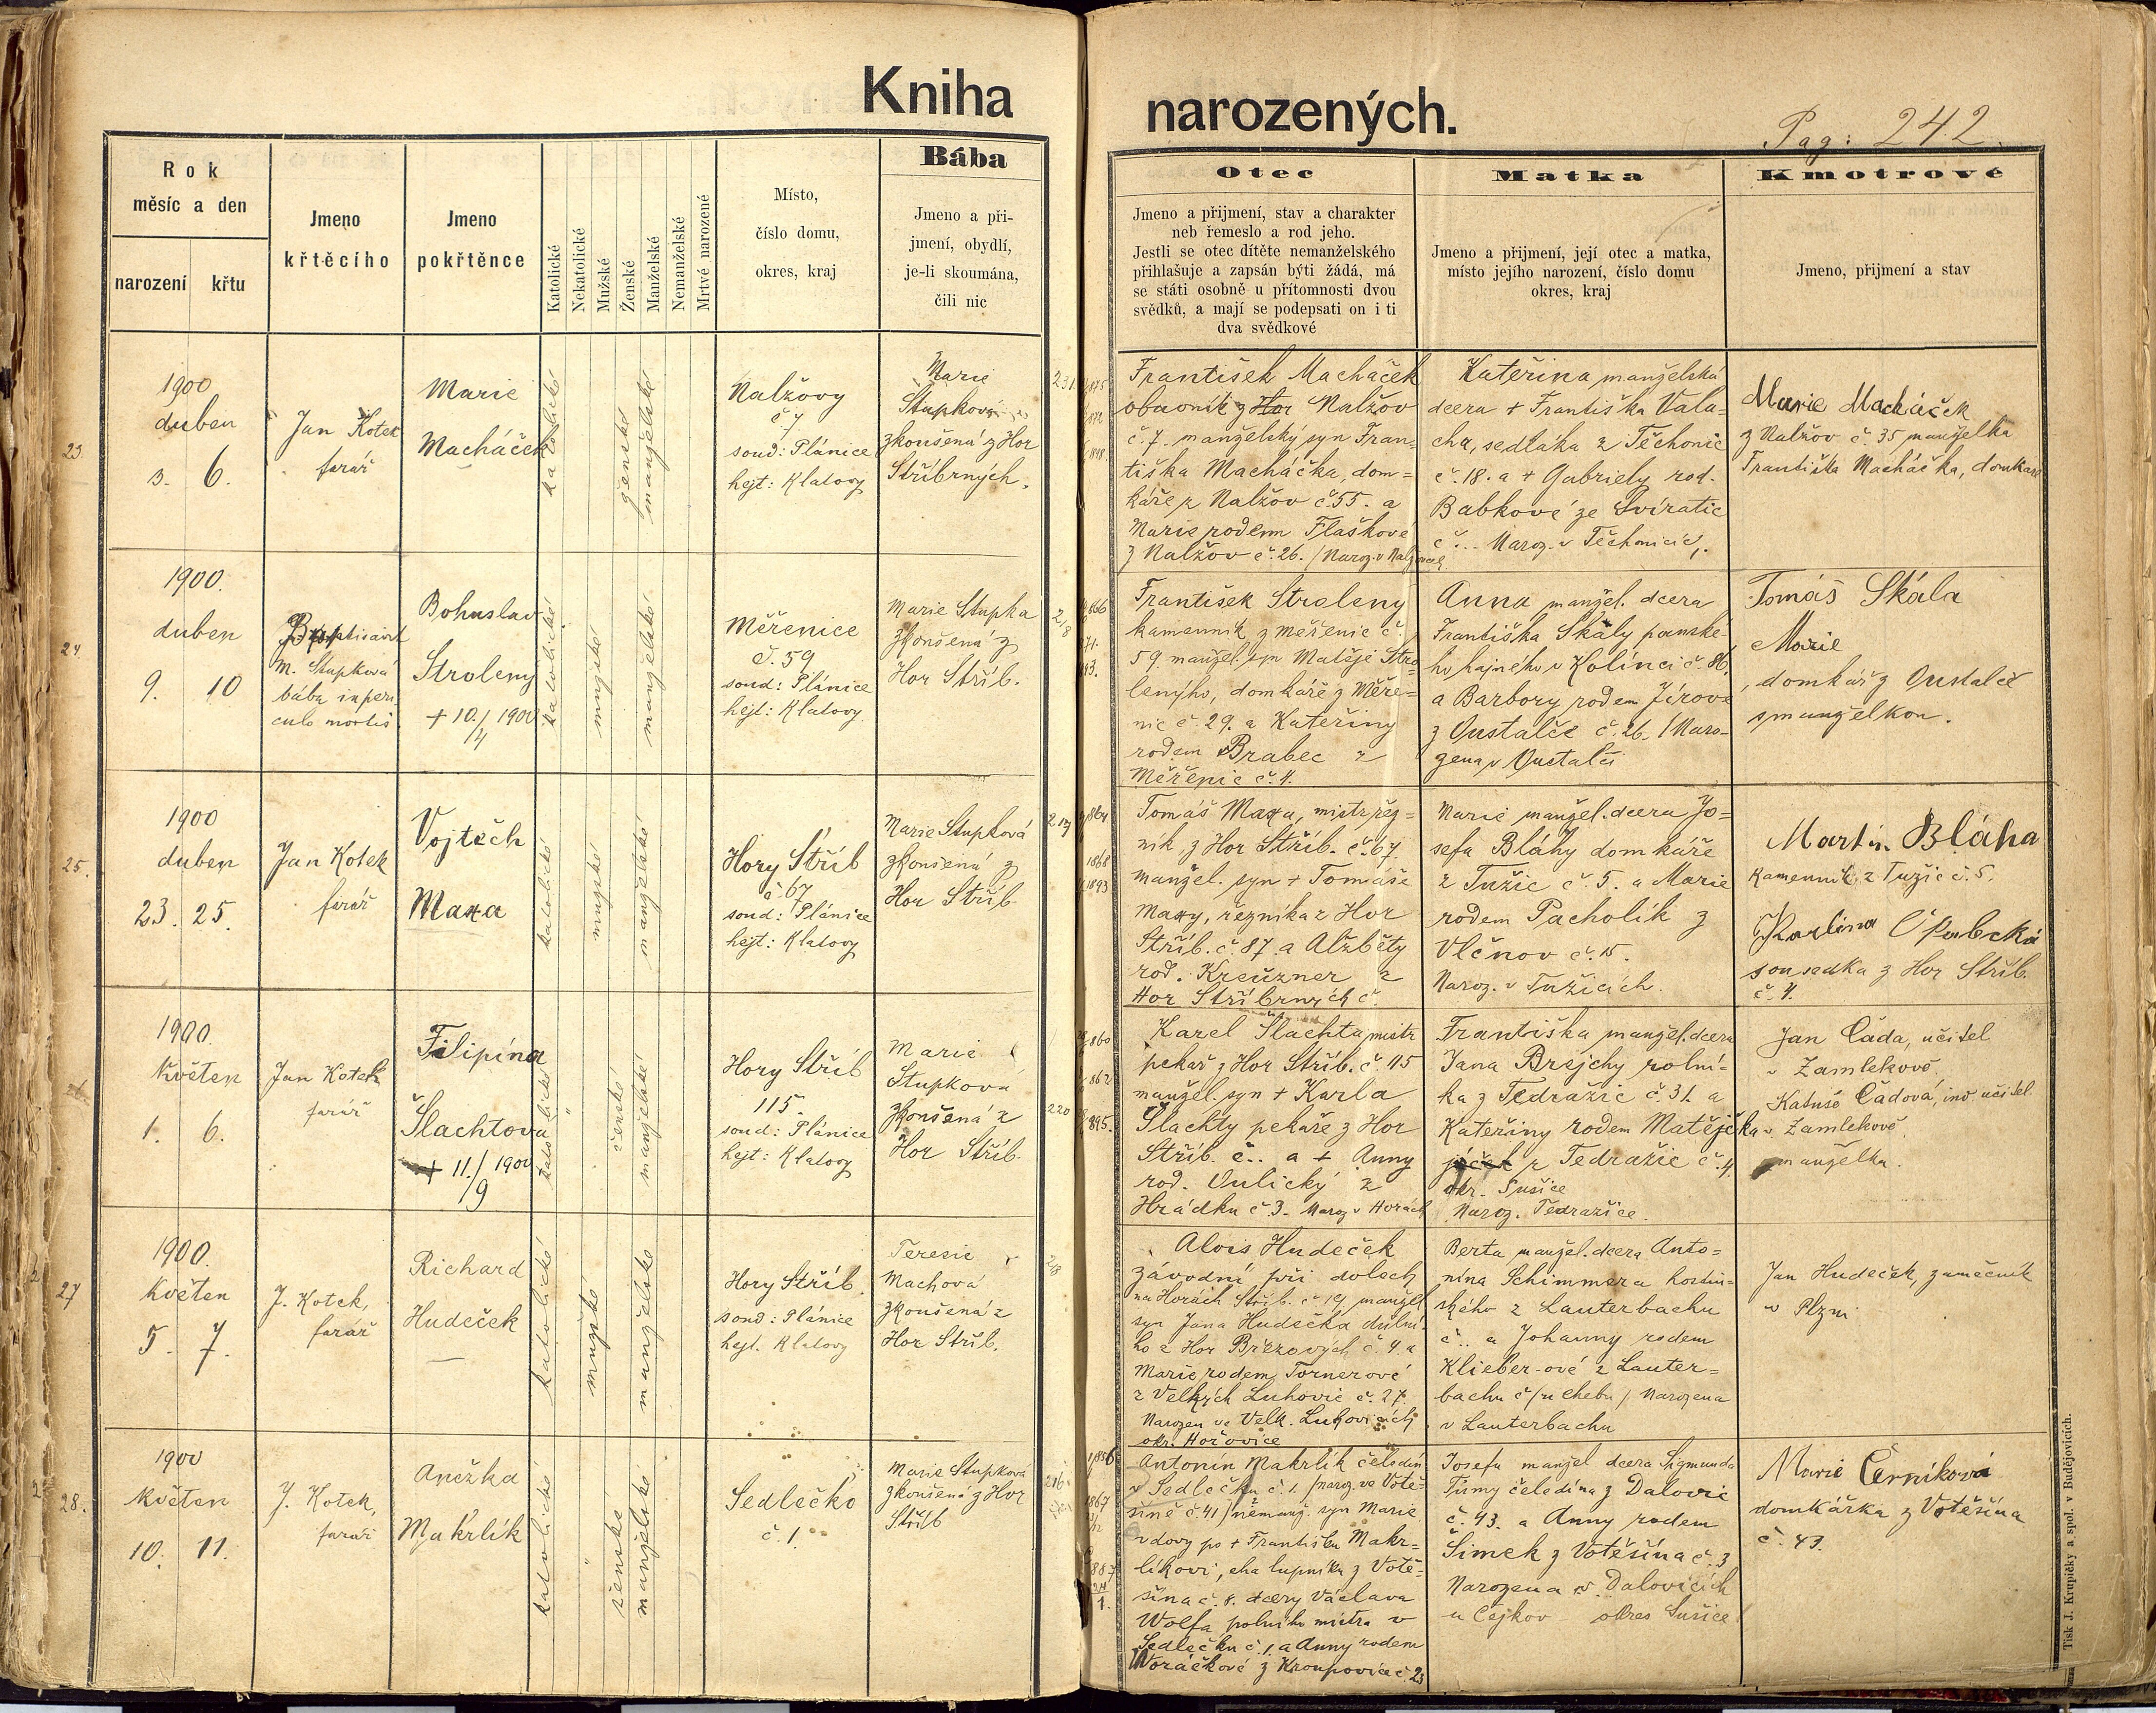 Kniha
narozených.
Pag: 242.
Rok
měsíc a den
narození
křtu
Jmeno
křtěcího
Jmeno
pokřtěnce
Katolické
Nekatolické
Mužské
Ženské
Manželské
Nemanželské
Mrtvé narozené
Místo,
číslo domu,
okres, kraj
Bába
Jmeno a při-
jmení, obydlí,
je-li skoumána,
čili nic
Otec
Jmeno a přijmení, stav a charakter
neb řemeslo a rod jeho.
Jestli se otec dítěte nemanželského
přihlašuje a zapsán býti žádá, má
se státi osobně u přítomnosti dvou
svědků, a mají se podepsati on i ti
dva svědkové
Matka
Jmeno a přijmení, její otec a matka,
místo jejího narození, číslo domu
okres, kraj
Kmotrové
Jmeno, přijmení a stav
23.
1900
duben
3. 6.
Jan Kotek
farář
Marie
Macháček
katolické
ženské
manželské
Nalžovy
č 7
soud: Plánice
hejt: Klatovy
Marie
Stupková
zkoušená z Hor
Stříbrných.
231.
František Macháček
obuvník z Hor Nalžov
č. 7. manželský syn Fran-
tiška Macháčka, dom=
káře z Nalžov č. 55. a
Marie rodem Flaškové
z Nalžov č. 26. /Naroz. v Nalžovech
Kateřina manželská
dcera + Františka Vala-
cha, sedláka z Těchonic
č. 18. a + Gabriely rod.
Babkové ze Svíratic
č... Naroz. v Těchonicích.
Marie Macháček
z Nalžov č. 35 manželka
Františka Macháčka, domkáře
24.
1900.
duben
9. 10
M. Stupková
bába in peri
culo mortis.
Bohuslav
Stroleny
+ 10./4 1900
katolické
mužské
manželské
Měřenice
č. 59
soud: Plánice
hejt: Klatovy
Marie Stupka
zkoušená z
Hor Stříb.
218
František Stroleny
kamenník z Měřenic č.
59. manžel. syn Matěje Stro
lenýho, domkáře z Měře=
nic č. 29. a Kateřiny
rodem Brabec z
Měřenic č. 4.
Anna manžel. dcera
Františka Skály panské-
ho hajného v Kolínci č. 86,
a Barbory rodem Jírové
z Oustalče č. 26. /Naro-
zena v Oustalči
Tomáš Skála
Marie
domkář z Oustalče
s manželkou.
25.
1900
duben
23. 25.
Jan Kotek
farář
Vojtěch
Maxa
katolické
mužské
manželské
Hory Stříb
č. 67
soud: Plánice
hejt: Klatovy
Marie Stupková
zkoušená z
Hor Stříb.
1868
1893
Tomáš Maxa, mistr řez=
ník, z Hor Stříb. č. 67.
manžel. syn + Tomáše
Maxy, řezníka z Hor
Stříb. č. 87. a Alžběty
rod. Kreuzner z
Hor Stříbrných č.
Marie manžel. dcera Jo=
sefa Bláhy domkáře
z Tužic č. 5. a Marie
rodem Pacholík z
Vlčnov č. 15.
Naroz. v Tužicích.
Martin Bláha
Kamenník z Tužic č. 5.
sousedka z Hor Stříb.
č. 4.
1900.
Květen
1. 6.
Jan Kotek
farář
Filipína
Šlachtova
+ 11./9 1900
katolické
ženské
manželské
Hory Stříb
115.
soud: Plánice
hejt: Klatovy
Marie
Stupková
zkoušená z
Hor Stříb.
220
Karel Šlachta, mistr
pekař z Hor Stříb. č. 115
manžel. syn + Karla
Šlachty pekaře z Hor
Stříb. č.. a + Anny
rod. Vulický z
Hrádku č. 3. Naroz. v Horách
Františka manžel. dcera
Jana Brejchy rolní-
ka z Tedražic č. 31. a
Kateřiny rodem Matějčka
z Tedražic č. 4.
okr. Sušice
Naroz. Tedražice.
Jan Čada, učitel
v Zamlekově.
Katuše Čadová, ind. učitel.
v Zamlekově,
manželka.
27
1900.
Květen
5. 7.
J. Kotek,
farář
Richard
Hudeček
katolické
mužské
manželské
Hory Stříb.
soud: Plánice
hejt. Klatovy
Teresie
Machová
zkoušená z
Hor Stříb.
Alois Hudeček
závodní při dolech
na Horách Stříb. č. 19, manžel.
syn Jana Hudečka důlní-
ho z Hor Březových č. 4. a
Marie rodem Tornerové
z Velkých Luhovic č. 27.
Narozen ve Velk. Luhovicích
okr. Hořovice
Berta, manžel. dcera Anto=
nína Schimmera hostin-
ského z Lauterbachu
č.. a Johanny rodem
Klieber-ové z Lauter=
bachu č /u Chebu/ Narozena
v Lauterbachu
Jan Hudeček, zámečník
v Plzni
28.
1900
Květen
10. 11.
J. Kotek,
farář
Anežka
Makrlík
katolické
ženské
manželské
Sedlečko
č. 1.
Marie Stupková
zkoušená z Hor
Stříb
216
1867
Antonín Makrlík čeledín
v Sedlečku č. 1. /naroz. ve Votě-
šině č. 41/ nemanž. syn Marie
vdovy po + Františku Makr=
líkovi, chalupníku z Votě-
šína č. 8. dcery Václava
Wolfa, polního mistra v
Sedlečku č. 1. a Anny rodem
Voráčkové z Kroupovic č. 23
Josefa manžel dcera Sigmunda
Tůmy čeledína z Dalovic
č. 43. a Anny rodem
Šimek z Votěšína č. 3
Narozena v Dalovicích
u Čejkov okres Sušice
Marie Černíková
domkářka z Votěšína
č. 43.
Tisk J. Krupičky a spol. v Budějovicích.